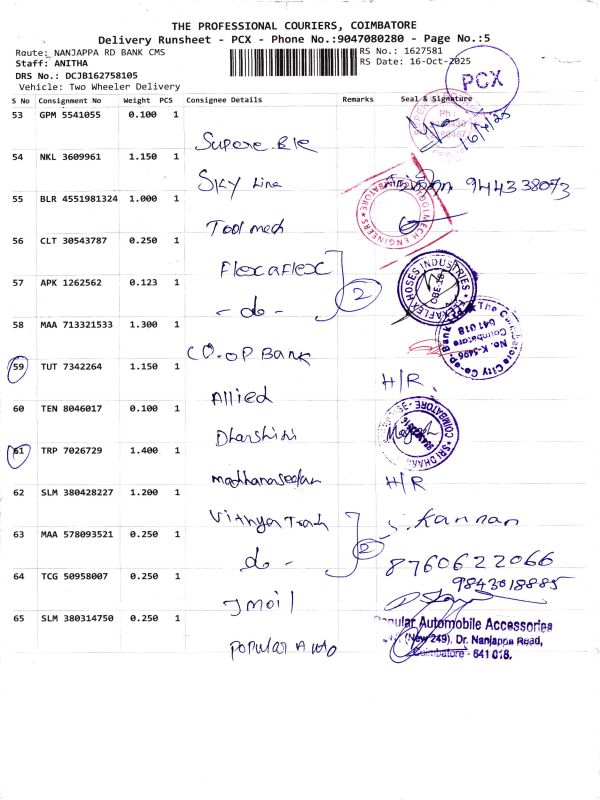 THE PROFESSIONAL COURIERS, COIMBATORE
Delivery Runsheet - PCX - Phone No.:9047080280 - Page No.:5
Route: NANJAPPA RD BANK CMS
RS No.: 1627581
Staff: ANITHA
RS Date: 16-Oct-2025
DRS No.: DCJB162758105
Vehicle: Two Wheeler Delivery
PCX
S No Consignment No Weight PCS Consignee Details Remarks Seal & Signature
53 GPM 5541055 0.100 1
Supere Ele
54 NKL 3609961 1.150 1
SKY Line 944338073
55 BLR 4551981324 1.000 1
Tool mech
56 CLT 30543787 0.250 1
Flexaflex
57 APK 1262562 0.123 1
- do - 2
58 MAA 713321533 1.300 1
CO.OP Bank
59 TUT 7342264 1.150 1
Allied H/R.
60 TEN 8046017 0.100 1
Dharshini
61 TRP 7026729 1.400 1
H/R
62 SLM 380428227 1.200 1
Vithya Trash S. Kannan
63 MAA 578093521 0.250 1
- do - 2 8760622066
9843018885
64 TCG 50958007 0.250 1
Jmoil
65 SLM 380314750 0.250 1
Popular Auto
Popular Automobile Accessories
(New 249), Dr. Nanjappa Road,
Coimbatore - 641 018.
FLEXAFLEX HOSES INDUSTRIES
CBE-18
The Coimbatore City Co-op Bank
No. K-3496
Coimbatore
641 018